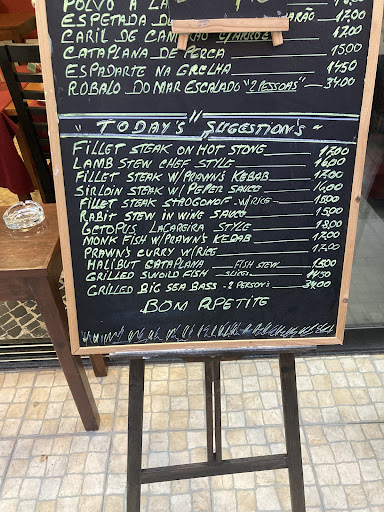 POLVO À LA
ESPETADA D
CARIL DE CAM C/ARROZ 17.00
CATAPLANA DE PERCA 15.00
ESPADARTE NA GRELHA 14.50
ROBALO DO MAR ESCALADO "2 PESSOAS" 34.00
" TODAY'S SUGESTION'S "
FILLET STEAK ON HOT STONE 17.00
LAMB STEW CHEF STYLE 16.00
FILLET STEAK W/PRAWN'S KEBAB 17.00
SIRLOIN STEAK W/ PEPER SAUCE 14.00
FILLET STEAK STROGONOF W/RICE 15.00
RABIT STEW IN WINE SAUCE 15.00
OCTOPUS LAGAREIRA STYLE 18.00
MONK FISH W/PRAWN'S KEBAB 17.00
PRAWN'S CURRY W/RICE 17.00
HALIBUT CATAPLANA FISH STEW 15.00
GRILLED SWORD FISH SLICE 14.50
GRILLED BIG SEA BASS - 2 PERSON'S 34.00
BOM APETITE